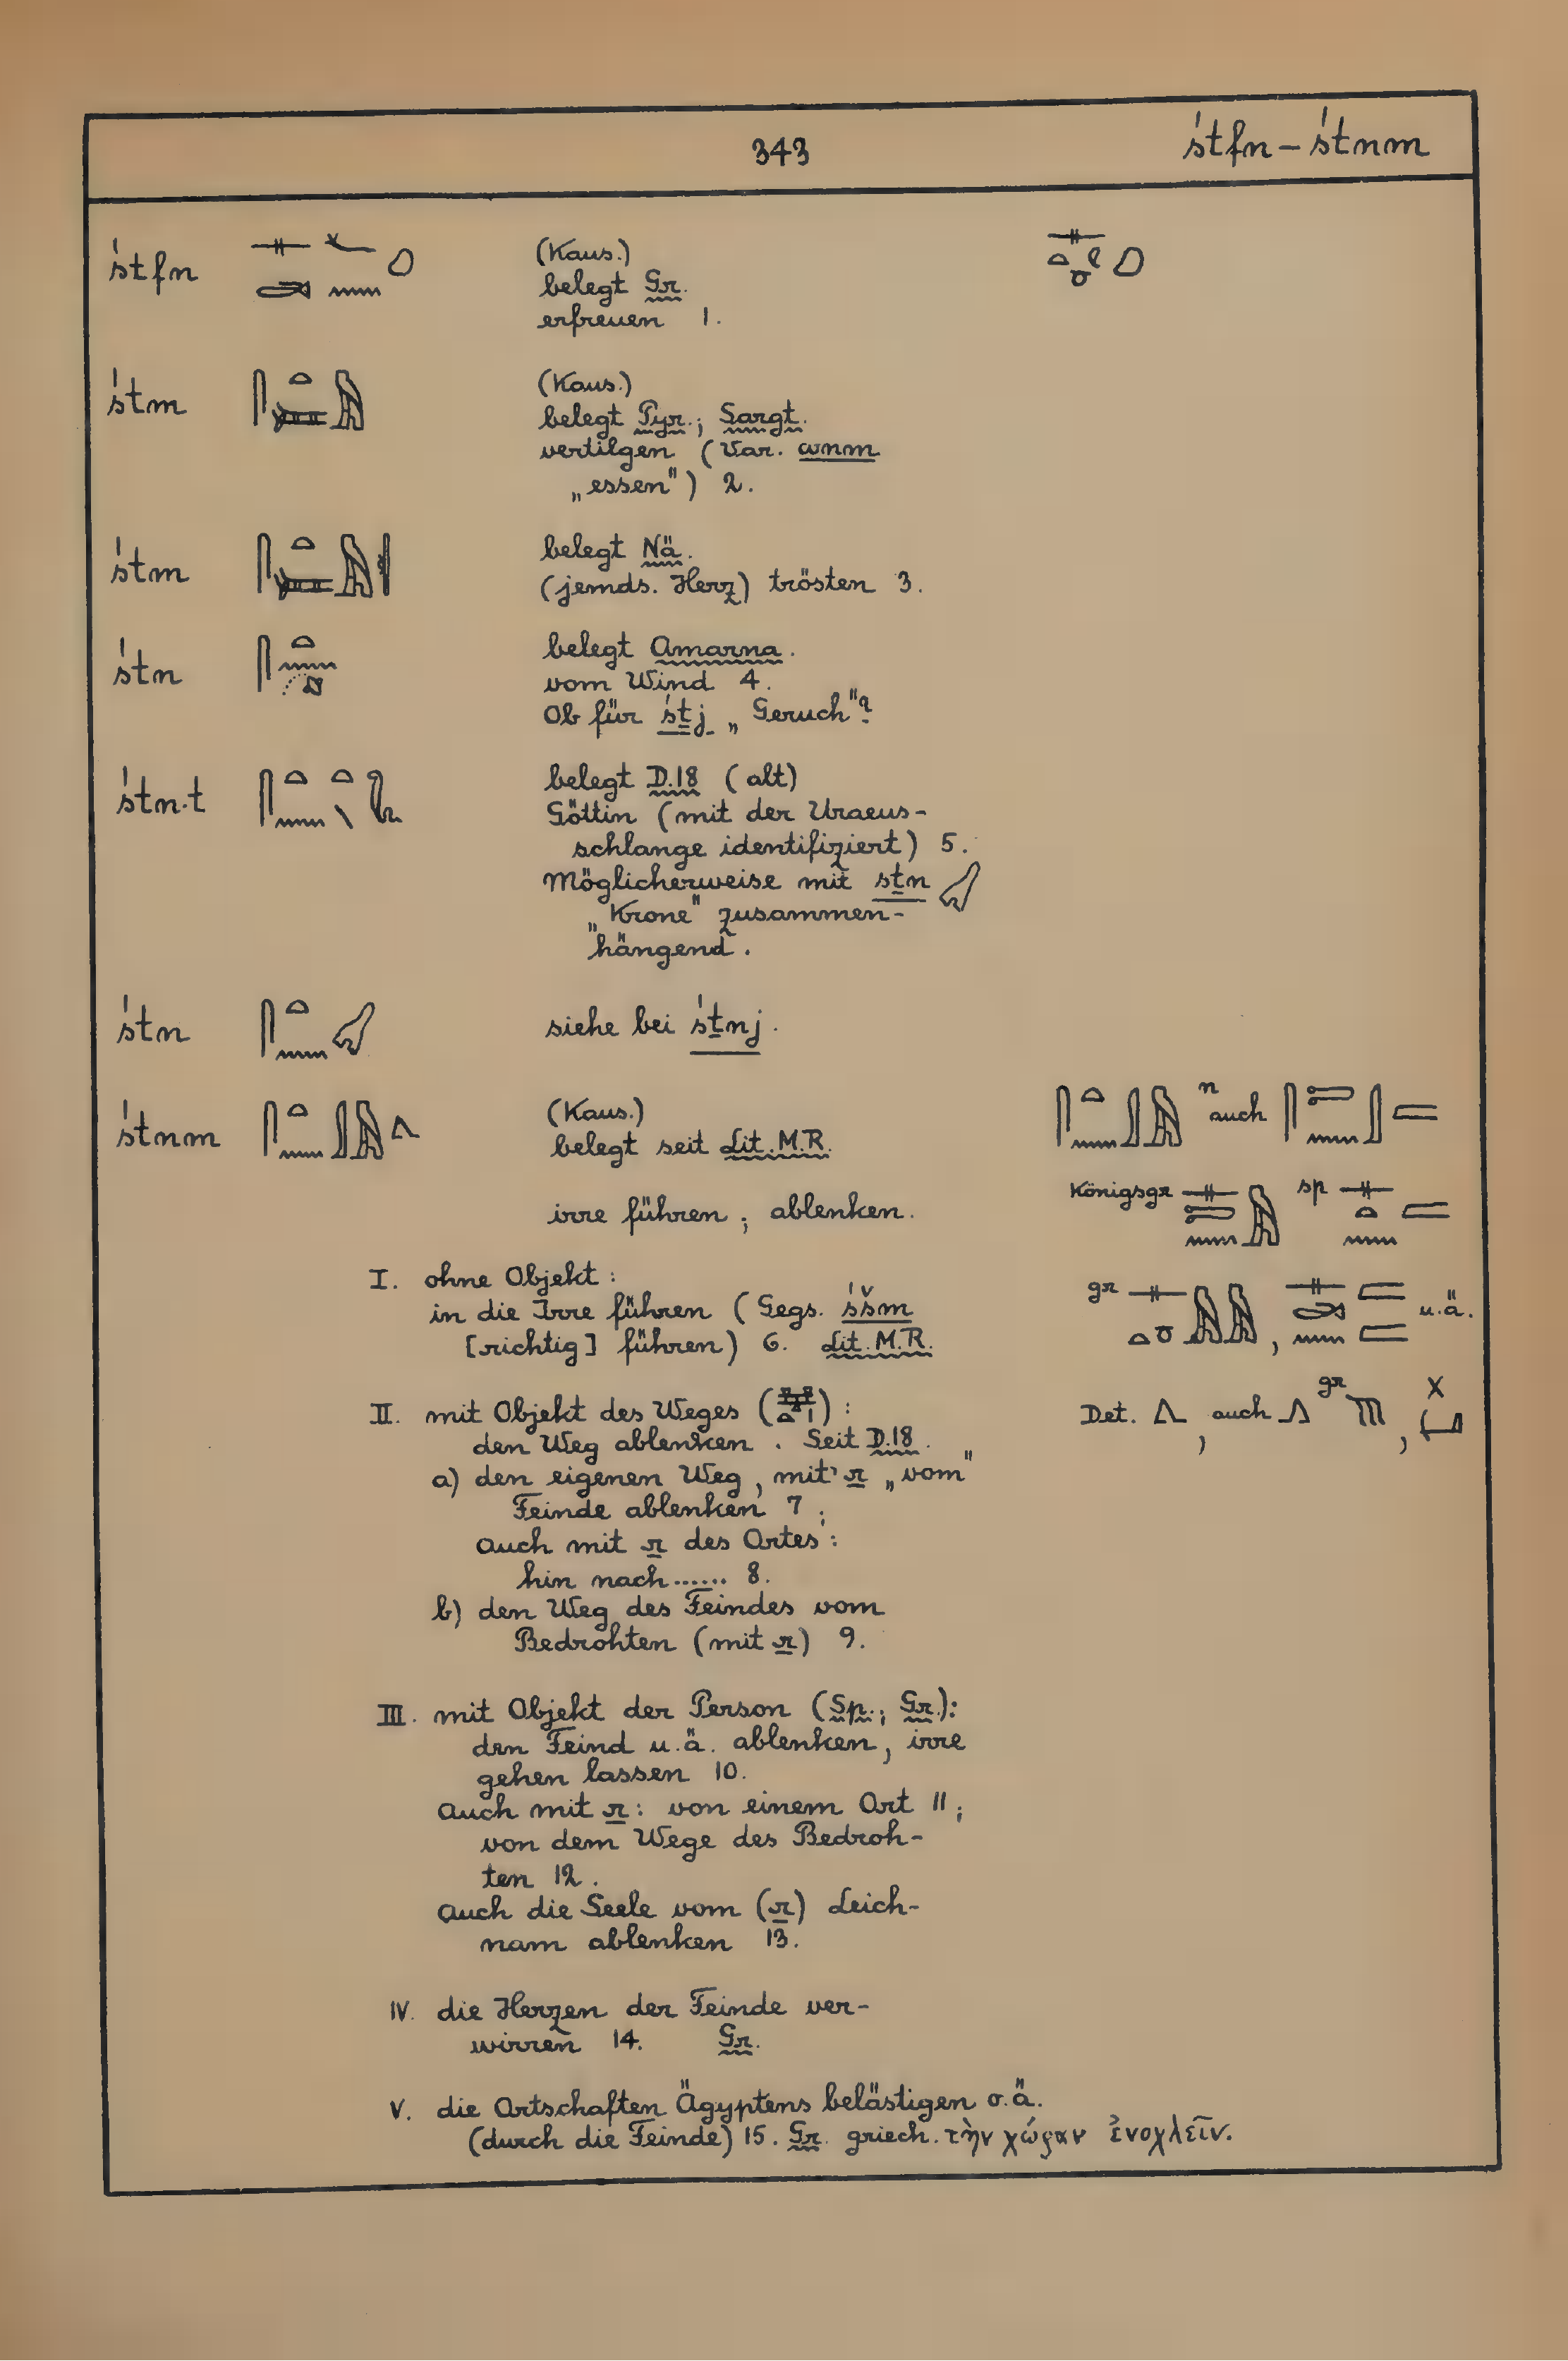 343
śtfn – śtnm
śtfn (Kaus.)
belegt Gr.
erfreuen 1.
śtm (Kaus.)
belegt Pyr.; Sargt.
vertilgen (Var. wnm
„essen") 2.
śtm belegt Nä.
(jemds. Herz) trösten 3.
śtn belegt Amarna.
vom Wind 4.
Ob für śṯj „Geruch"?
śtn.t belegt D.18 (alt)
Göttin (mit der Uraeus-
schlange identifiziert) 5.
Möglicherweise mit sṯn
„Krone" zusammen-
hängend.
śtn siehe bei śṯnj.
śtnm (Kaus.) n auch
belegt seit Lit. M.R.
irre führen; ablenken. Königsgr sp
I. ohne Objekt:
in die Irre führen (Gegs. śšm gr , u.ä.
[richtig] führen) 6. Lit. M.R.
II. mit Objekt des Weges ( ): Det. , auch gr ,
den Weg ablenken. Seit D.18.
a) den eigenen Weg, mit r „vom"
Feinde ablenken 7;
auch mit r des Ortes:
hin nach...... 8.
b) den Weg des Feindes vom
Bedrohten (mit r) 9.
III. mit Objekt der Person (Sp.; Gr.):
den Feind u.ä. ablenken, irre
gehen lassen 10.
auch mit r: von einem Ort 11;
von dem Wege des Bedroh-
ten 12.
auch die Seele vom (r) Leich-
nam ablenken 13.
IV. die Herzen der Feinde ver-
wirren 14. Gr.
V. die Ortschaften Ägyptens belästigen o.ä.
(durch die Feinde) 15. Gr. griech. τὴν χώραν ἐνοχλεῖν.